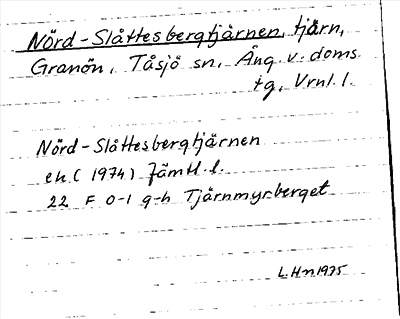 Nörd-Slåttesbergtjärnen, tjärn,
Granön, Tåsjö sn, Ång. v. doms.
tg, Vrnl. l.
Nörd-Slåttesbergtjärnen
ek. (1974) Jämtl. l.
22 F 0-1 g-h Tjärnmyrberget
L.Hm 1975